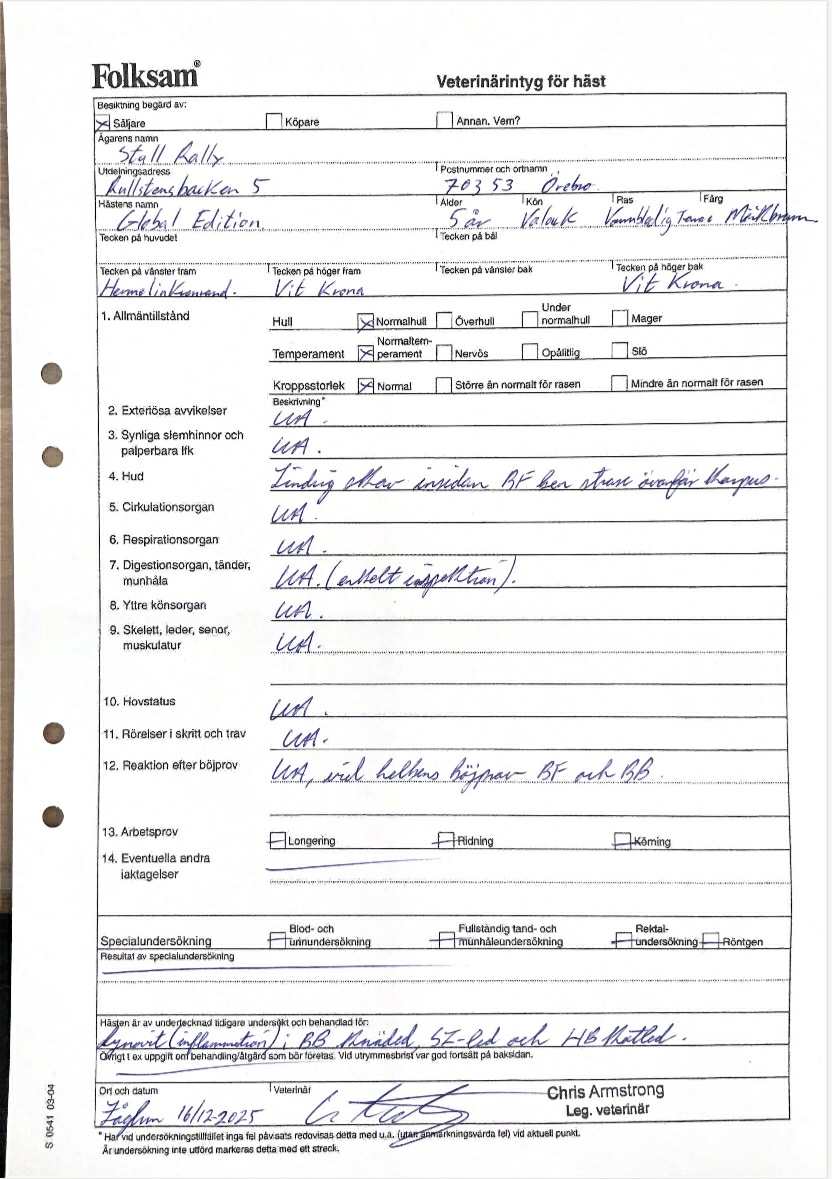 Folksam®
Veterinärintyg för häst
Besiktning begärd av:
Säljare Köpare Annan. Vem?
Ägarens namn
Stall Rally
Utdelningsadress Postnummer och ortnamn
Rullstensbacken 5 703 53 Örebro
Hästens namn Ålder Kön Ras Färg
Global Edition 5 år Valack Varmblodig Mörkbrun
Tecken på huvudet Tecken på bål
Tecken på vänster fram Tecken på höger fram Tecken på vänster bak Tecken på höger bak
Hermelinkronrand. Vit Krona Vit Krona.
1. Allmäntillstånd Hull Normalhull Överhull Under normalhull Mager
Temperament Normaltemperament Nervös Opålitlig Slö
Kroppsstorlek Normal Större än normalt för rasen Mindre än normalt för rasen
Beskrivning*
2. Exteriösa avvikelser UA.
3. Synliga slemhinnor och palperbara lfk UA.
4. Hud Lindrig insidan BF ben strax ovanför Karpus.
5. Cirkulationsorgan UA.
6. Respirationsorgan UA.
7. Digestionsorgan, tänder, munhåla UA. (enkelt inspektion).
8. Yttre könsorgan UA.
9. Skelett, leder, senor, muskulatur UA.
10. Hovstatus UA.
11. Rörelser i skritt och trav UA.
12. Reaktion efter böjprov UA, vid helbens böjprov BF och BB.
13. Arbetsprov Longering Ridning Körning
14. Eventuella andra iaktagelser
Specialundersökning Blod- och urinundersökning Fullständig tand- och munhåleundersökning Rektalundersökning Röntgen
Resultat av specialundersökning
Hästen är av undertecknad tidigare undersökt och behandlad för:
Synovit (inflammation) i BB Knäled, SI-led och HB Kotled.
Övrigt t ex uppgift om behandling/åtgärd som bör företas. Vid utrymmesbrist var god fortsätt på baksidan.
Ort och datum Veterinär
16/12-2025
Chris Armstrong
Leg. veterinär
* Har vid undersökningstillfället inga fel påvisats redovisas detta med u.a. (utan anmärkningsvärda fel) vid aktuell punkt.
Är undersökning inte utförd markeras detta med ett streck.
S 0541 03-04